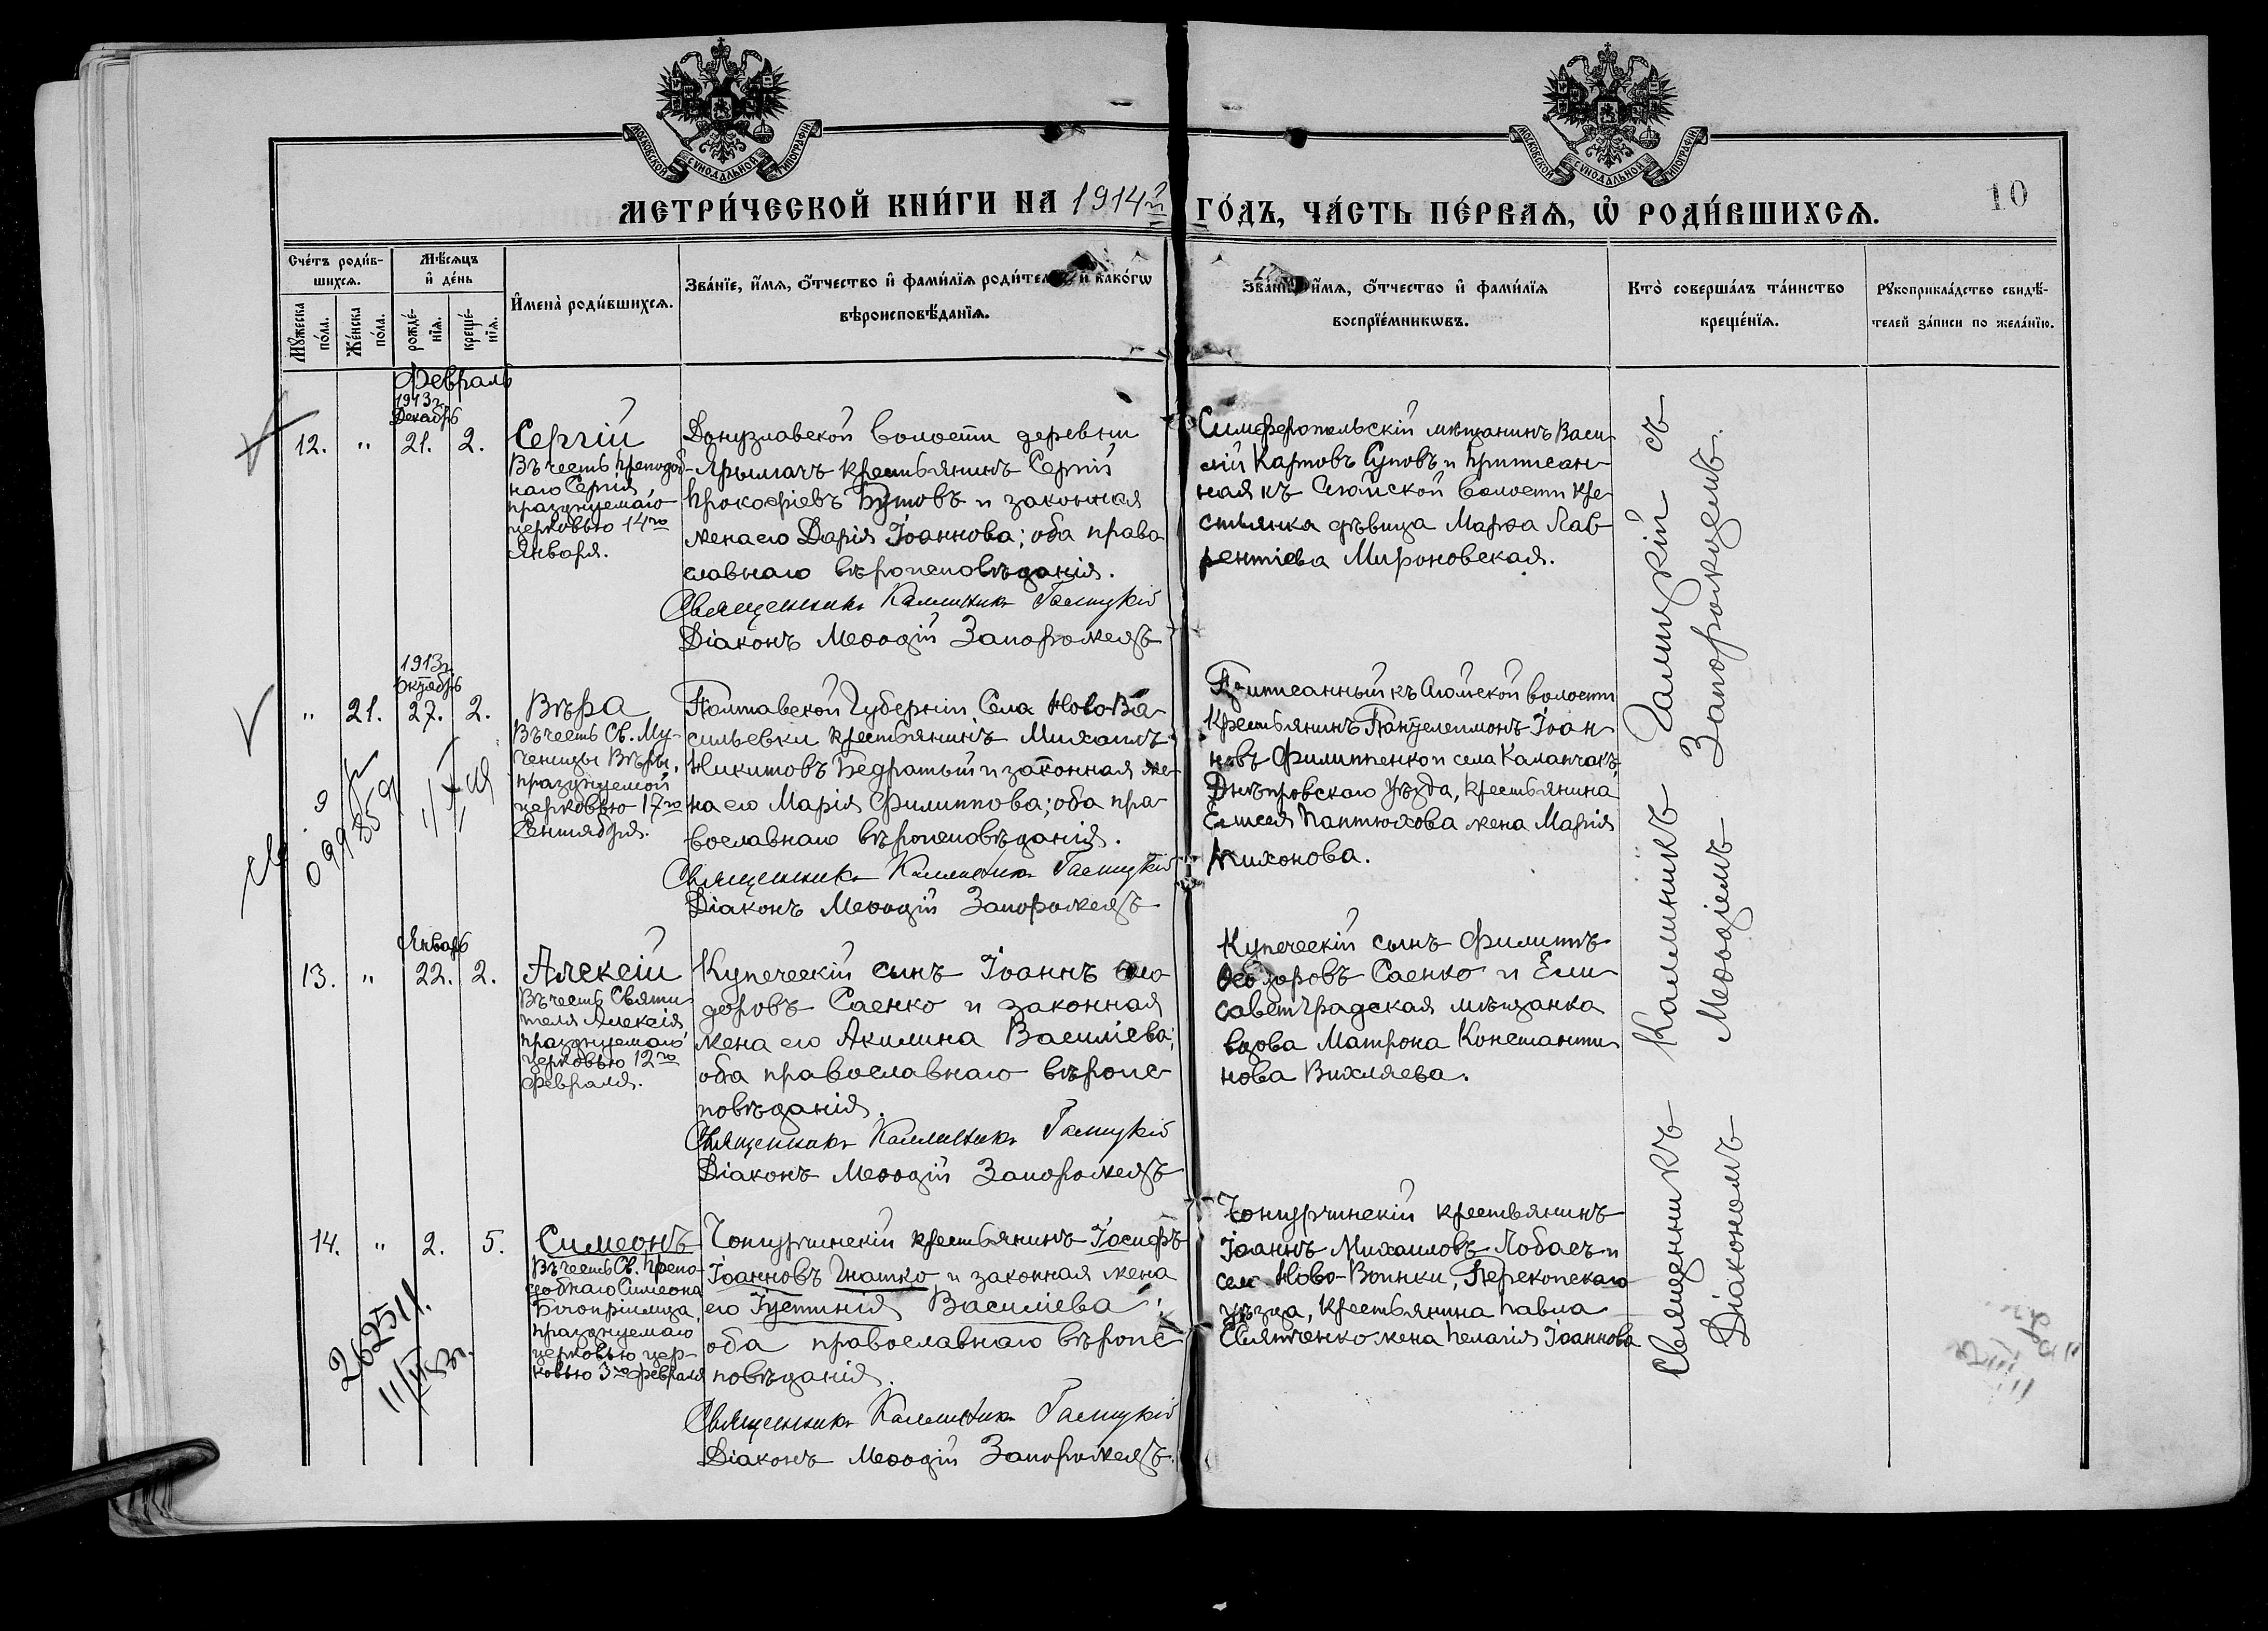 МОСКОВСКОЙ СУНОДАЛЬНОЙ ТИПОГРАФІИ
МОСКОВСКОЙ СУНОДАЛЬНОЙ ТИПОГРАФІИ
МЕТРИ́ЧЕСКОЙ КНИ́ГИ НА 1914й ГО́ДЪ, ЧА́СТЬ ПЕ́РВАѦ, Ѡ҆ РОДИ́ВШИХСѦ.
10
Сче́тъ роди́в-
шихсѧ.
Мꙋ́жеска по́ла.
Же́нска по́ла.
Мѣ́сѧцъ
и҆ де́нь
рожде́-
нїѧ.
креще́-
нїѧ.
И҆мена̀ роди́вшихсѧ.
Зва́нїе, и҆́мѧ, ѻ҆́тчество и҆ фами́лїѧ родител и҆ како́гѡ
вѣроисповѣ́данїѧ.
и҆́мѧ, ѻ҆́тчество и҆ фами́лїѧ
воспрїе́мникѡвъ.
Кто̀ соверша́лъ та́инство
креще́нїѧ.
Рꙋкоприкла́дство свидѣ́-
телей за́писи по жела́нїю.
Февраль
1913г.
Декабрь
12. " 21. 2.
Сергій
Въ честь преподоб-
наго Сергія
празднуемаго
церковью 14го
Января.
Донузлавской волости деревни
крестьянинъ Сергій
Прокофіевъ Бутовъ и законная
жена его Дарія Іоаннова; оба право
славнаго вѣроисповѣданія.
Священникъ Каллиникъ Галицкій
Діаконъ Меѳодій Запорожецъ
Симферопольскій мѣщанинъ Васи
лій Карповъ и приписан
ная къ волости кре
стьянка дѣвица Марѳа Лав
рентіева Мироновская.
1913г.
Октябрь
" 21. 27. 2.
Вѣра
Въ честь Св. Му-
ченицы Вѣры,
празднуемой
церковью 17го
Сентября.
Полтавской Губерніи Села Ново Ва
сильевки крестьянинъ Михаилъ
Никитовъ Бедратый и законная же
на его Марія Филиппова; оба пра
вославнаго вѣроисповѣданія.
Священникъ Каллиникъ Галицкій
Діаконъ Меѳодій Запорожецъ
Приписанный къ волости
крестьянинъ Пантелеимонъ Іоан
новъ Филиппенко и села Каланчакъ,
Днѣпровскаго уѣзда, крестьянина
Елисея Пантюхова жена Марія
Тихонова.
Январь
13. " 22. 2.
Алексій
Въ честь Святи
теля Алексія,
празднуемаго
церковью 12го
Февраля.
Купеческій сынъ Іоаннъ Ѳео
доровъ Саенко и законная
жена его Акилина Василіева;
оба православнаго вѣроис
повѣданія.
Священникъ Каллиникъ Галицкій
Діаконъ Меѳодій Запорожецъ
Купеческій сынъ Филиппъ
Ѳеодоровъ Саенко и Ели
саветградская мѣщанка
вдова Матрона Константи
нова Вихляева.
14. " 2. 5.
Симеонъ
Въ честь Св. Препо
добнаго Симеона
Богопріимца,
празднуемаго
церковью цер-
ковью 3го Февраля
262511.
Чонгурчинскій крестьянинъ Іосифъ
Іоанновъ Гнатко и законная жена
его Іустинія Василіева;
оба православнаго вѣроис
повѣданія.
Священникъ Каллиникъ Галицкій
Діаконъ Меѳодій Запорожецъ.
Чонгурчинскій крестьянинъ
Іоаннъ Михаиловъ Лобасъ и
села Ново-Воинки, Перекопскаго
уѣзда, крестьянина Павла
Святченко жена Пелагія Іоаннова
Священникъ Каллиникъ Галицкій съ
Діакономъ Меѳодіемъ Запорожцемъ.